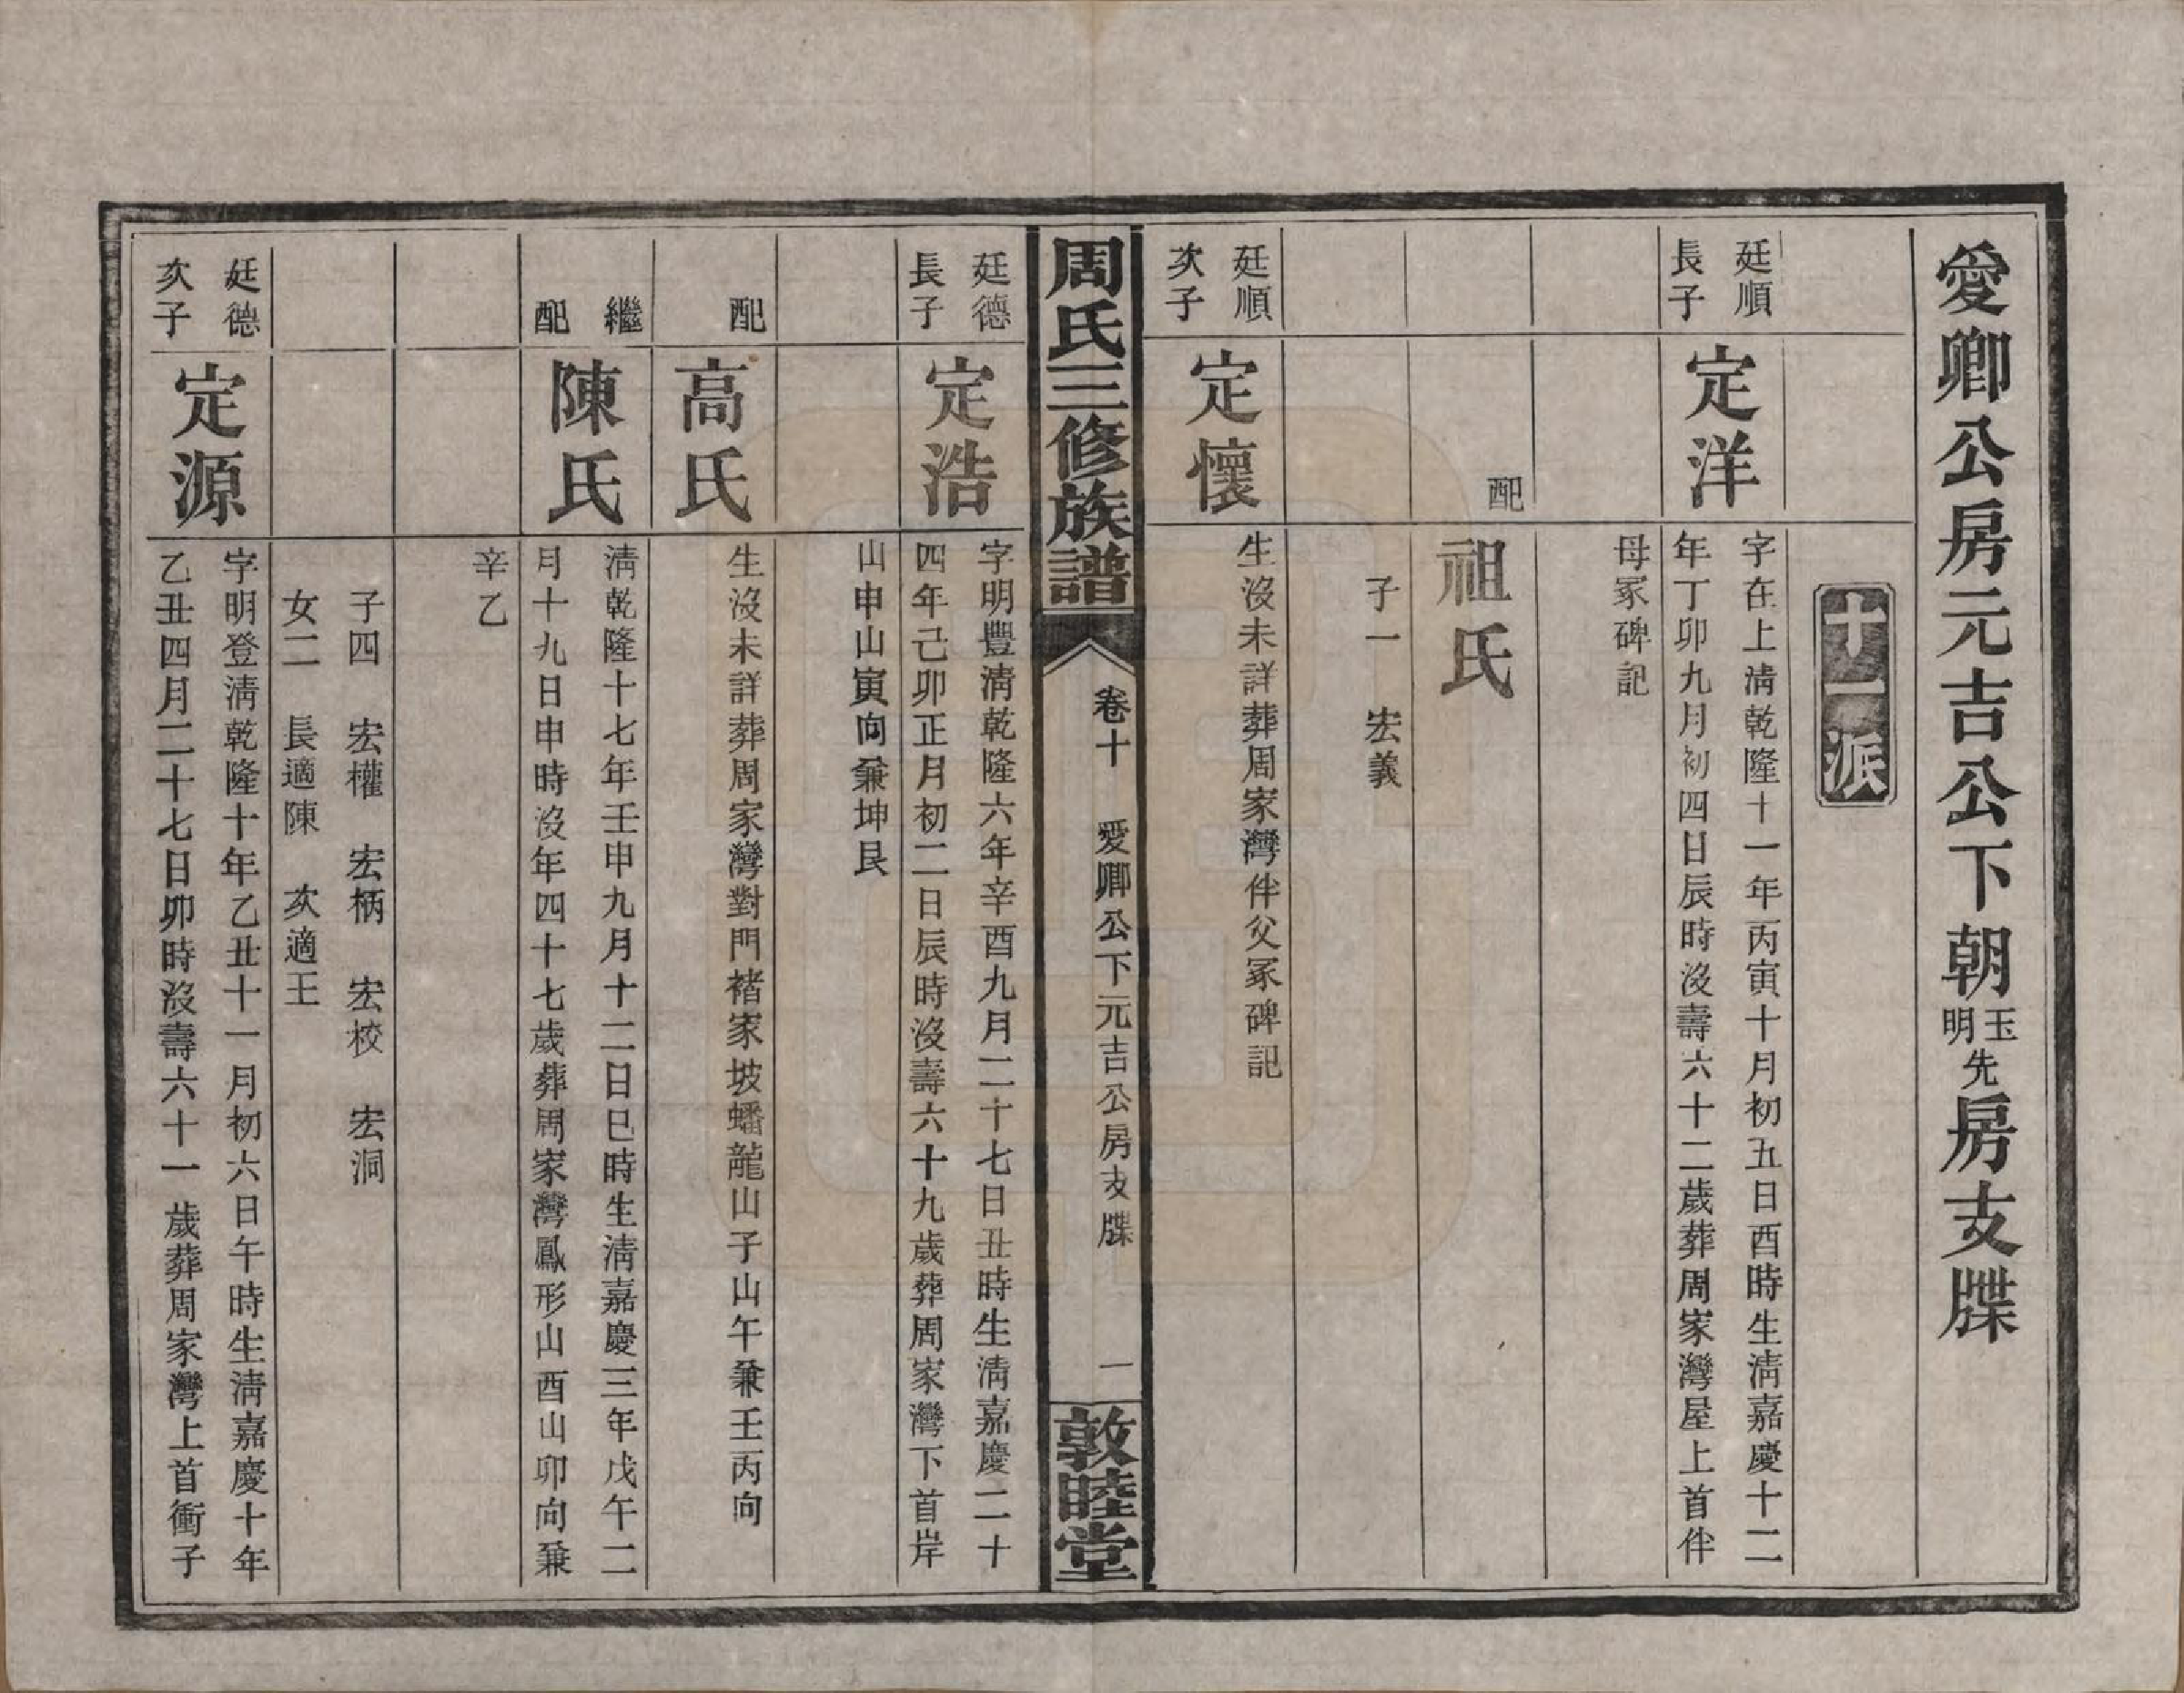 愛卿公房元吉公下朝玉明先房支牒
十一派
廷順
長子
定洋
字在上清乾隆十一年丙寅十月初五日酉時生清嘉慶十二
年丁卯九月初四日辰時沒壽六十二歲葬周家灣屋上首伴
母冢碑記
配
祖氏
子一 宏義
廷順
次子
定懷
生沒未詳葬周家灣伴父冢碑記
周氏三修族譜
卷十 愛卿公下元吉公房支牒 一
敦睦堂
廷德
長子
定浩
字明豐清乾隆六年辛酉九月二十七日丑時生清嘉慶二十
四年己卯正月初二日辰時沒壽六十九歲葬周家灣下首岸
山申山寅向兼坤艮
配
高氏
生沒未詳葬周家灣對門褚家坡蟠龍山子山午兼壬丙向
繼
配
陳氏
清乾隆十七年壬申九月十二日巳時生清嘉慶三年戊午二
月十九日申時沒年四十七歲葬周家灣鳳形山酉山卯向兼
辛乙
子四 宏權 宏柄 宏校 宏洞
女二 長適陳 次適王
廷德
次子
定源
字明登清乾隆十年乙丑十一月初六日午時生清嘉慶十年
乙丑四月二十七日卯時沒壽六十一歲葬周家灣上首衝子